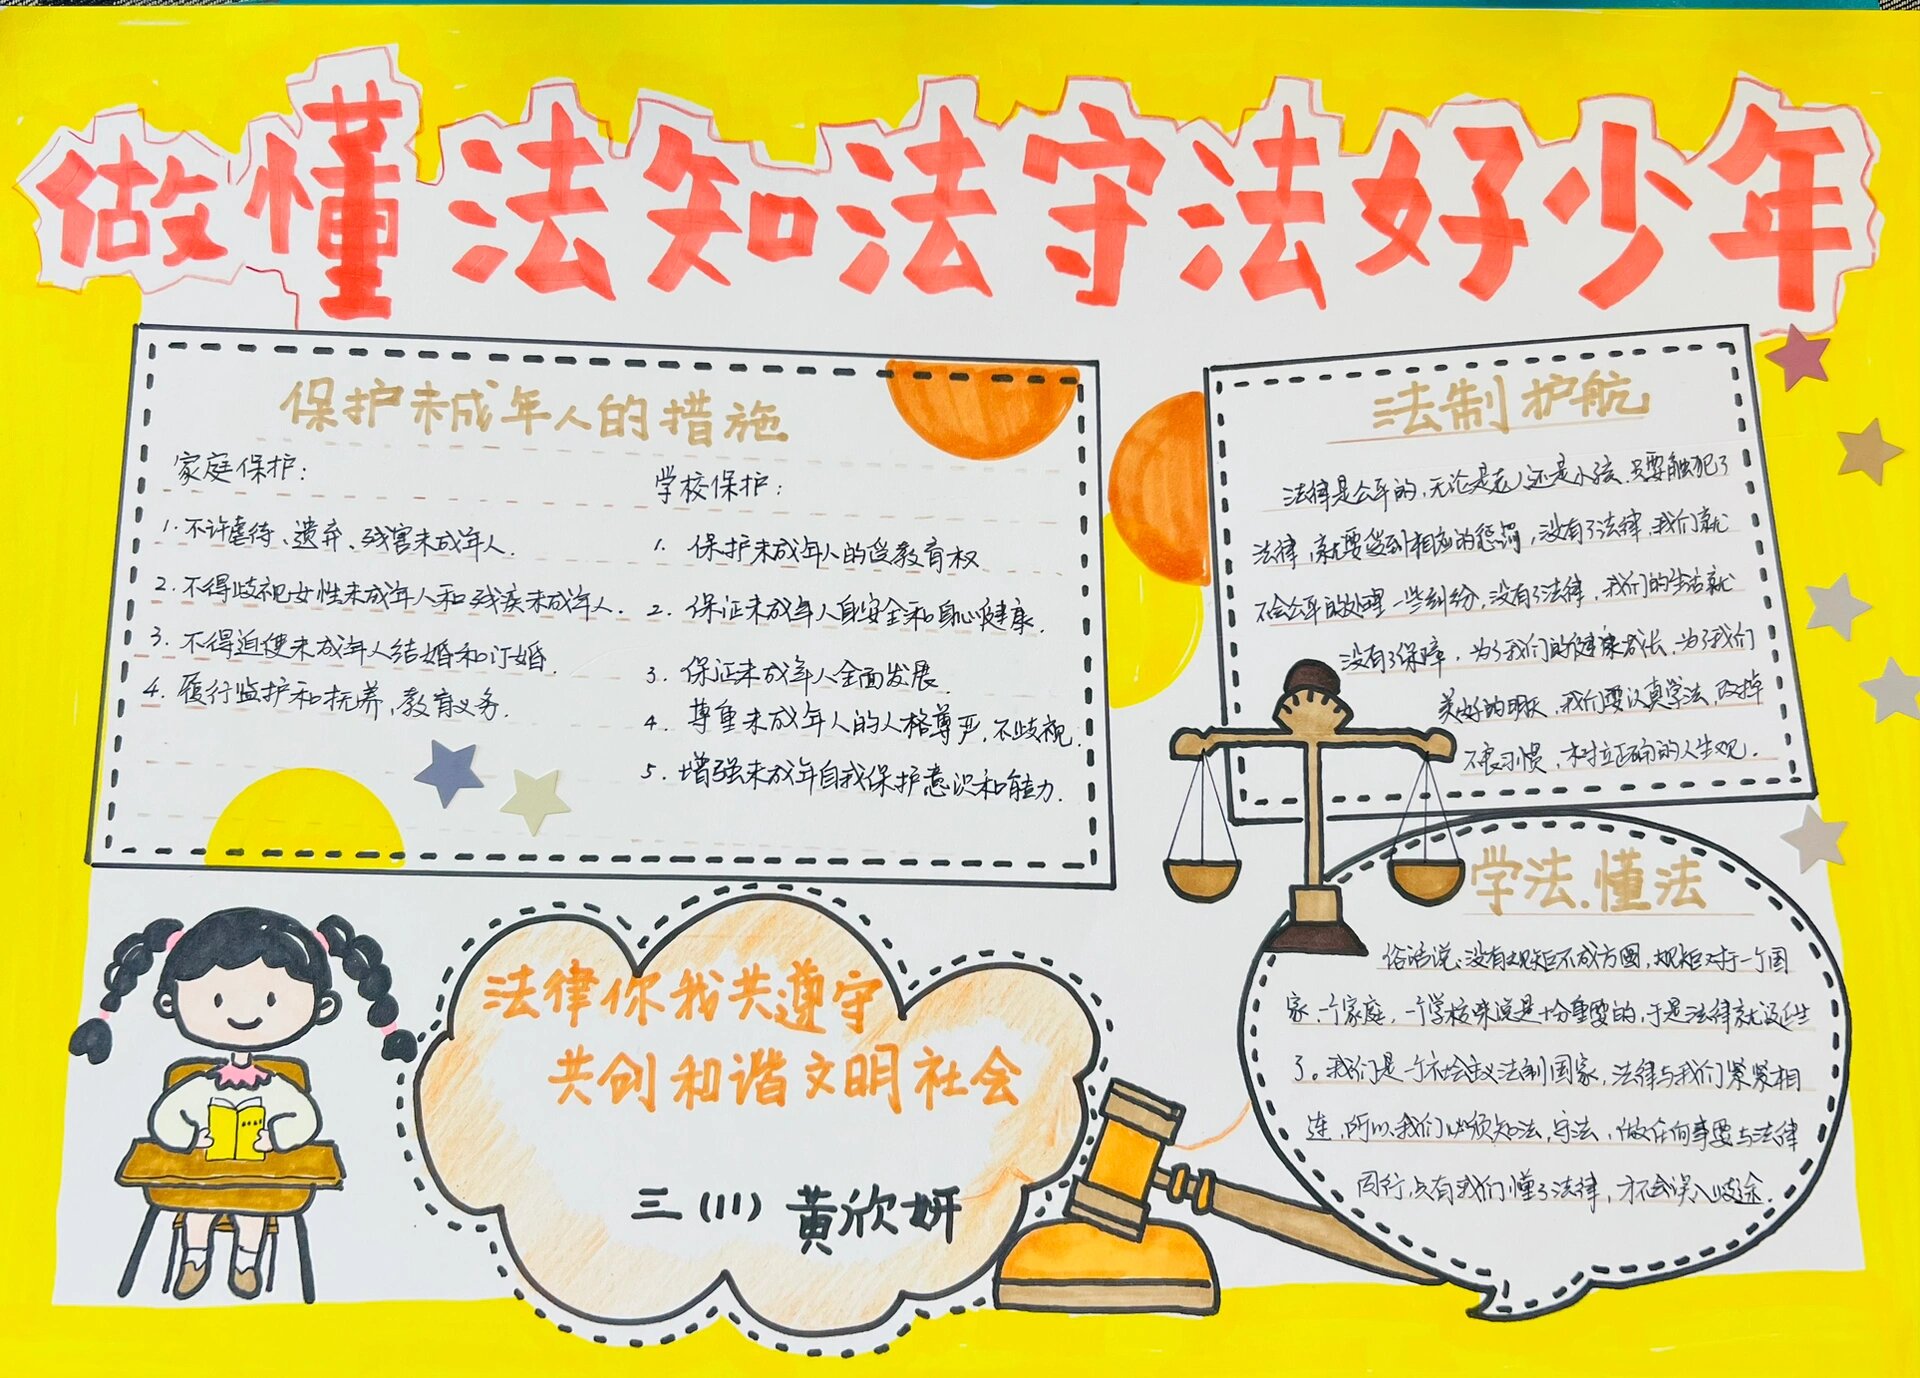 做懂法知法守法好少年
保护未成年人的措施
家庭保护:
1.不许虐待、遗弃、残害未成年人.
2.不得歧视女性未成年人和残疾未成年人.
3.不得迫使未成年人结婚和订婚.
4.履行监护和抚养,教育义务.
学校保护:
1.保护未成年人的受教育权
2.保证未成年人身安全和身心健康.
3.保证未成年人全面发展.
4.尊重未成年人的人格尊严,不歧视.
5.增强未成年自我保护意识和能力.
法制护航
法律是公平的,无论是老人还是小孩,只要触犯了
法律,就要受到相应的惩罚,没有了法律,我们就
不会公平的处理一些纠纷,没有了法律,我们的生活就
没有了保障,为了我们的健康成长,为了我们
美好的明天,我们要认真学法,改掉
不良习惯,树立正确的人生观.
学法.懂法
俗话说:没有规矩不成方圆,规矩对于一个国
家,一个家庭,一个学校来说是十分重要的,于是法律就诞生
了。我们是一个社会主义法制国家,法律与我们紧紧相
连,所以,我们必须知法,守法,做任何事要与法律
同行,只有我们懂了法律,才不会误入歧途.
法律你我共遵守
共创和谐文明社会
三(11)黄欣妍